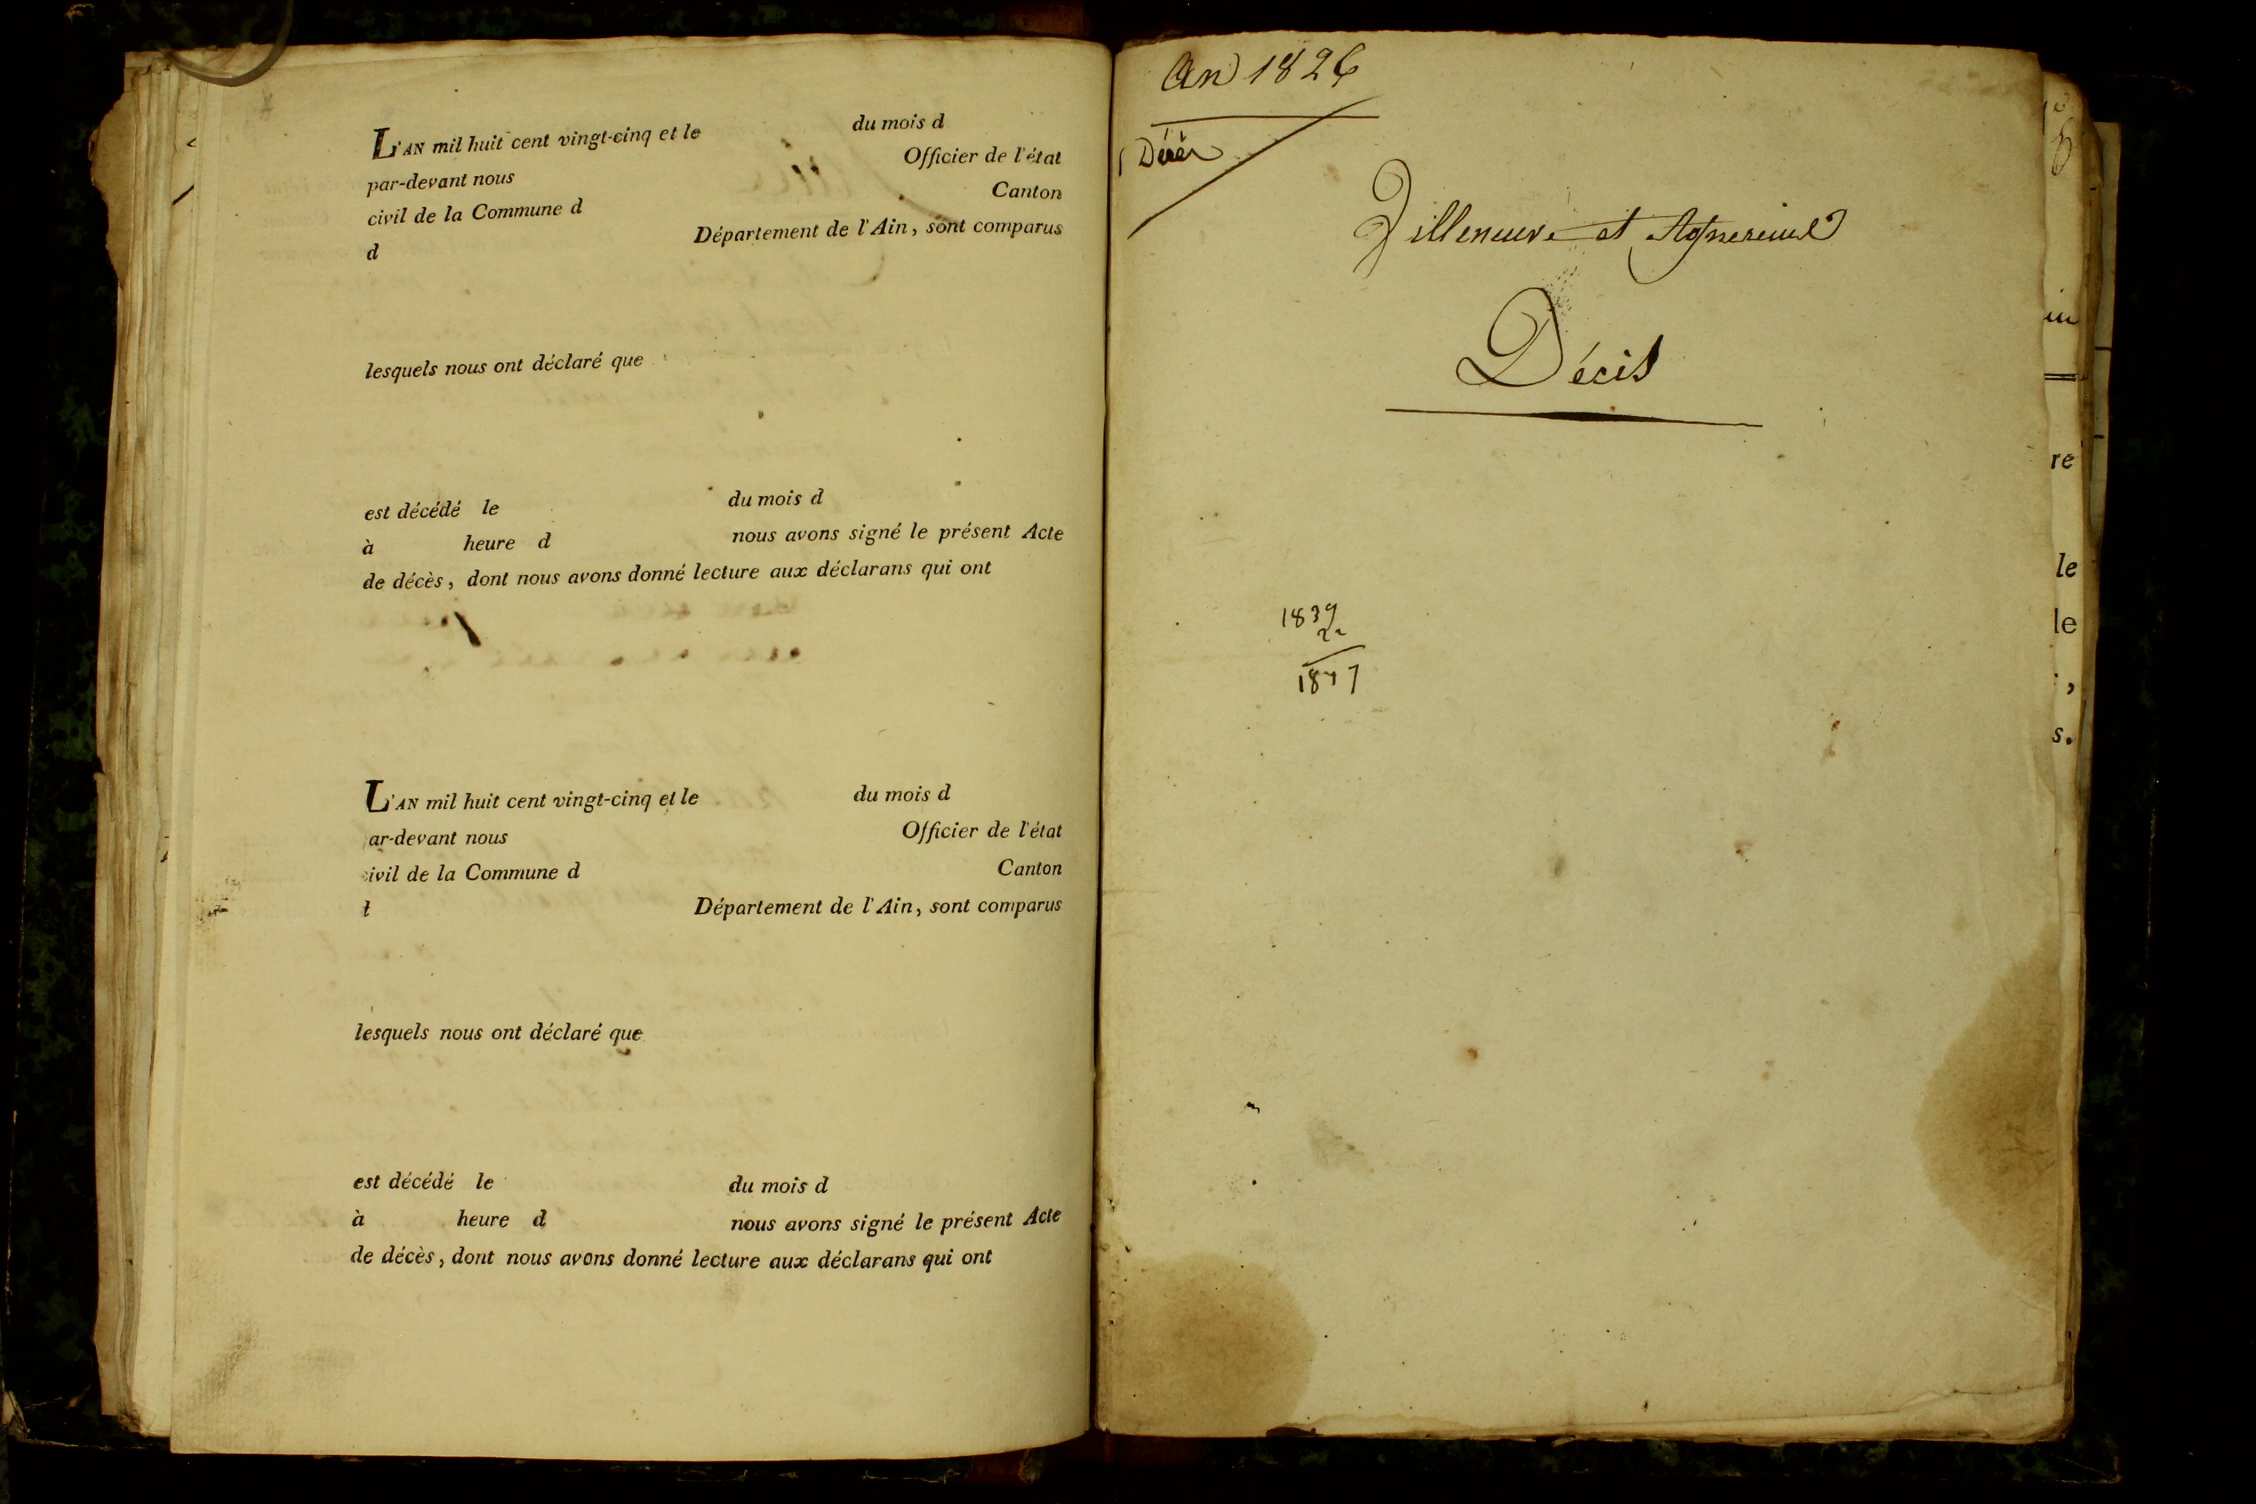 L'AN mil huit cent vingt-cinq et le du mois d
par-devant nous Officier de l'état
civil de la Commune d Canton
d Département de l'Ain, sont comparus
lesquels nous ont déclaré que
est décédé le du mois d
à heure d nous avons signé le présent Acte
de décès, dont nous avons donné lecture aux déclarans qui ont
L'AN mil huit cent vingt-cinq et le du mois d
ar-devant nous Officier de l'état
ivil de la Commune d Canton
Département de l'Ain, sont comparus
lesquels nous ont déclaré que
est décédé le du mois d
à heure d nous avons signé le présent Acte
de décès, dont nous avons donné lecture aux déclarans qui ont
An 1826
Villeneuve et Agnereins
Décès
1839
re
le
le
,
s.